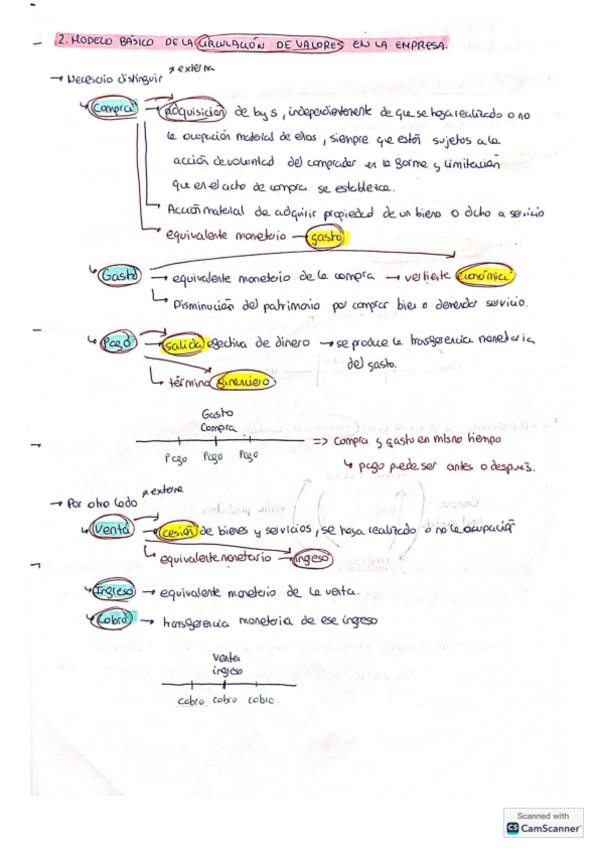 2. MODELO BÁSICO DE LA CIRCULACIÓN DE VALORES EN LA EMPRESA.
→ Necesario distinguir ↗ externa
↳ Compra → adquisición de b y s, independientemente de que se haya realizado o no
la ocupación material de ellos, siempre que estén sujetos a la
acción de voluntad del comprador en la forma y limitación
que en el acto de compra se establezca.
Acción material de adquirir propiedad de un bien o dcho a servicio
equivalente monetario → gasto
↳ Gasto → equivalente monetario de la compra → vertiente económica
↳ Disminución del patrimonio por comprar bien o servicio.
↳ Pago → salida efectiva de dinero → se produce la trasferencia monetaria
del gasto.
↳ término financiero
Gasto
Compra
Pago Pago Pago
=> compra y gasto en mismo tiempo
↳ pago puede ser antes o después.
→ Por otro lado ↗ externa
↳ Venta → cesión de bienes y servicios, se haya realizado o no la ocupación
↳ equivalente monetario → ingreso
↳ Ingreso → equivalente monetario de la venta.
↳ Cobro → transferencia monetaria de ese ingreso
venta
ingreso
cobro cobro cobro.
Scanned with
CS CamScanner